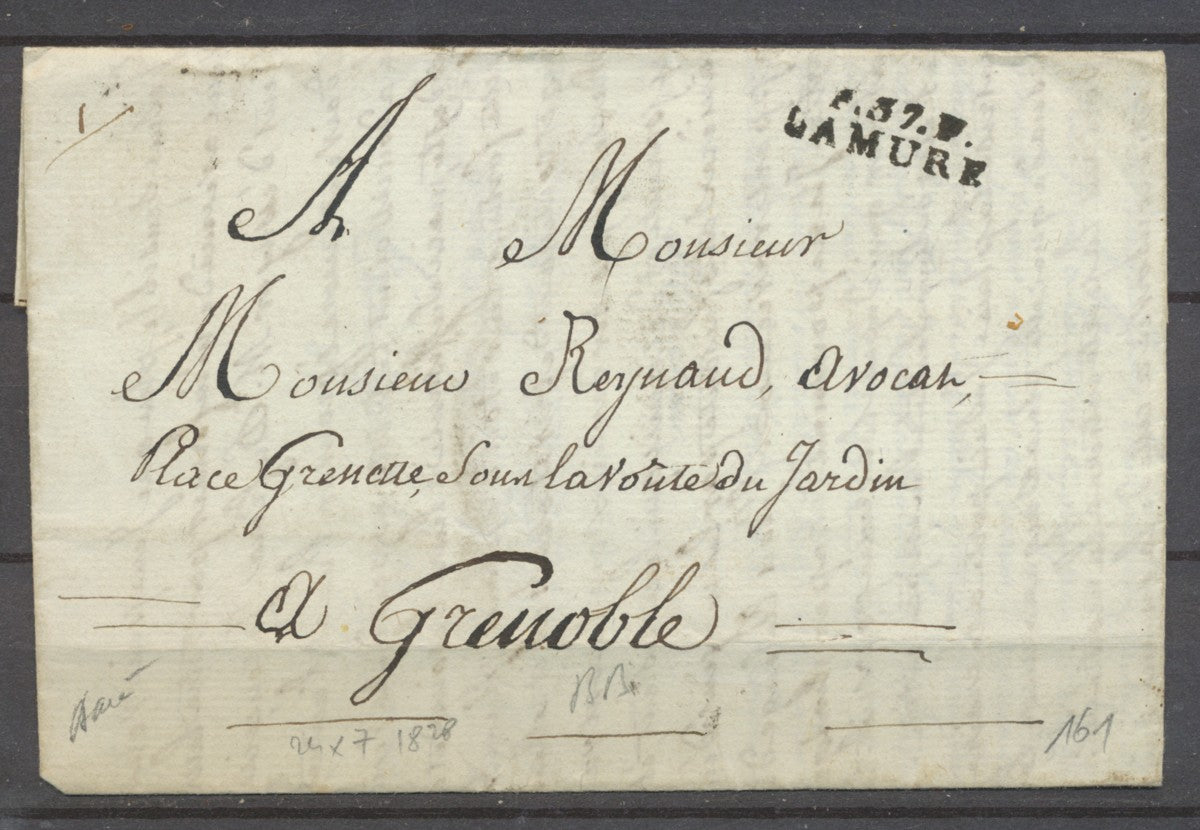 P.37.P.
LAMURE
A Monsieur
Monsieur Reynaud, avocat,
Place Grenette, Sous la voûte du Jardin
a Grenoble
1828
161